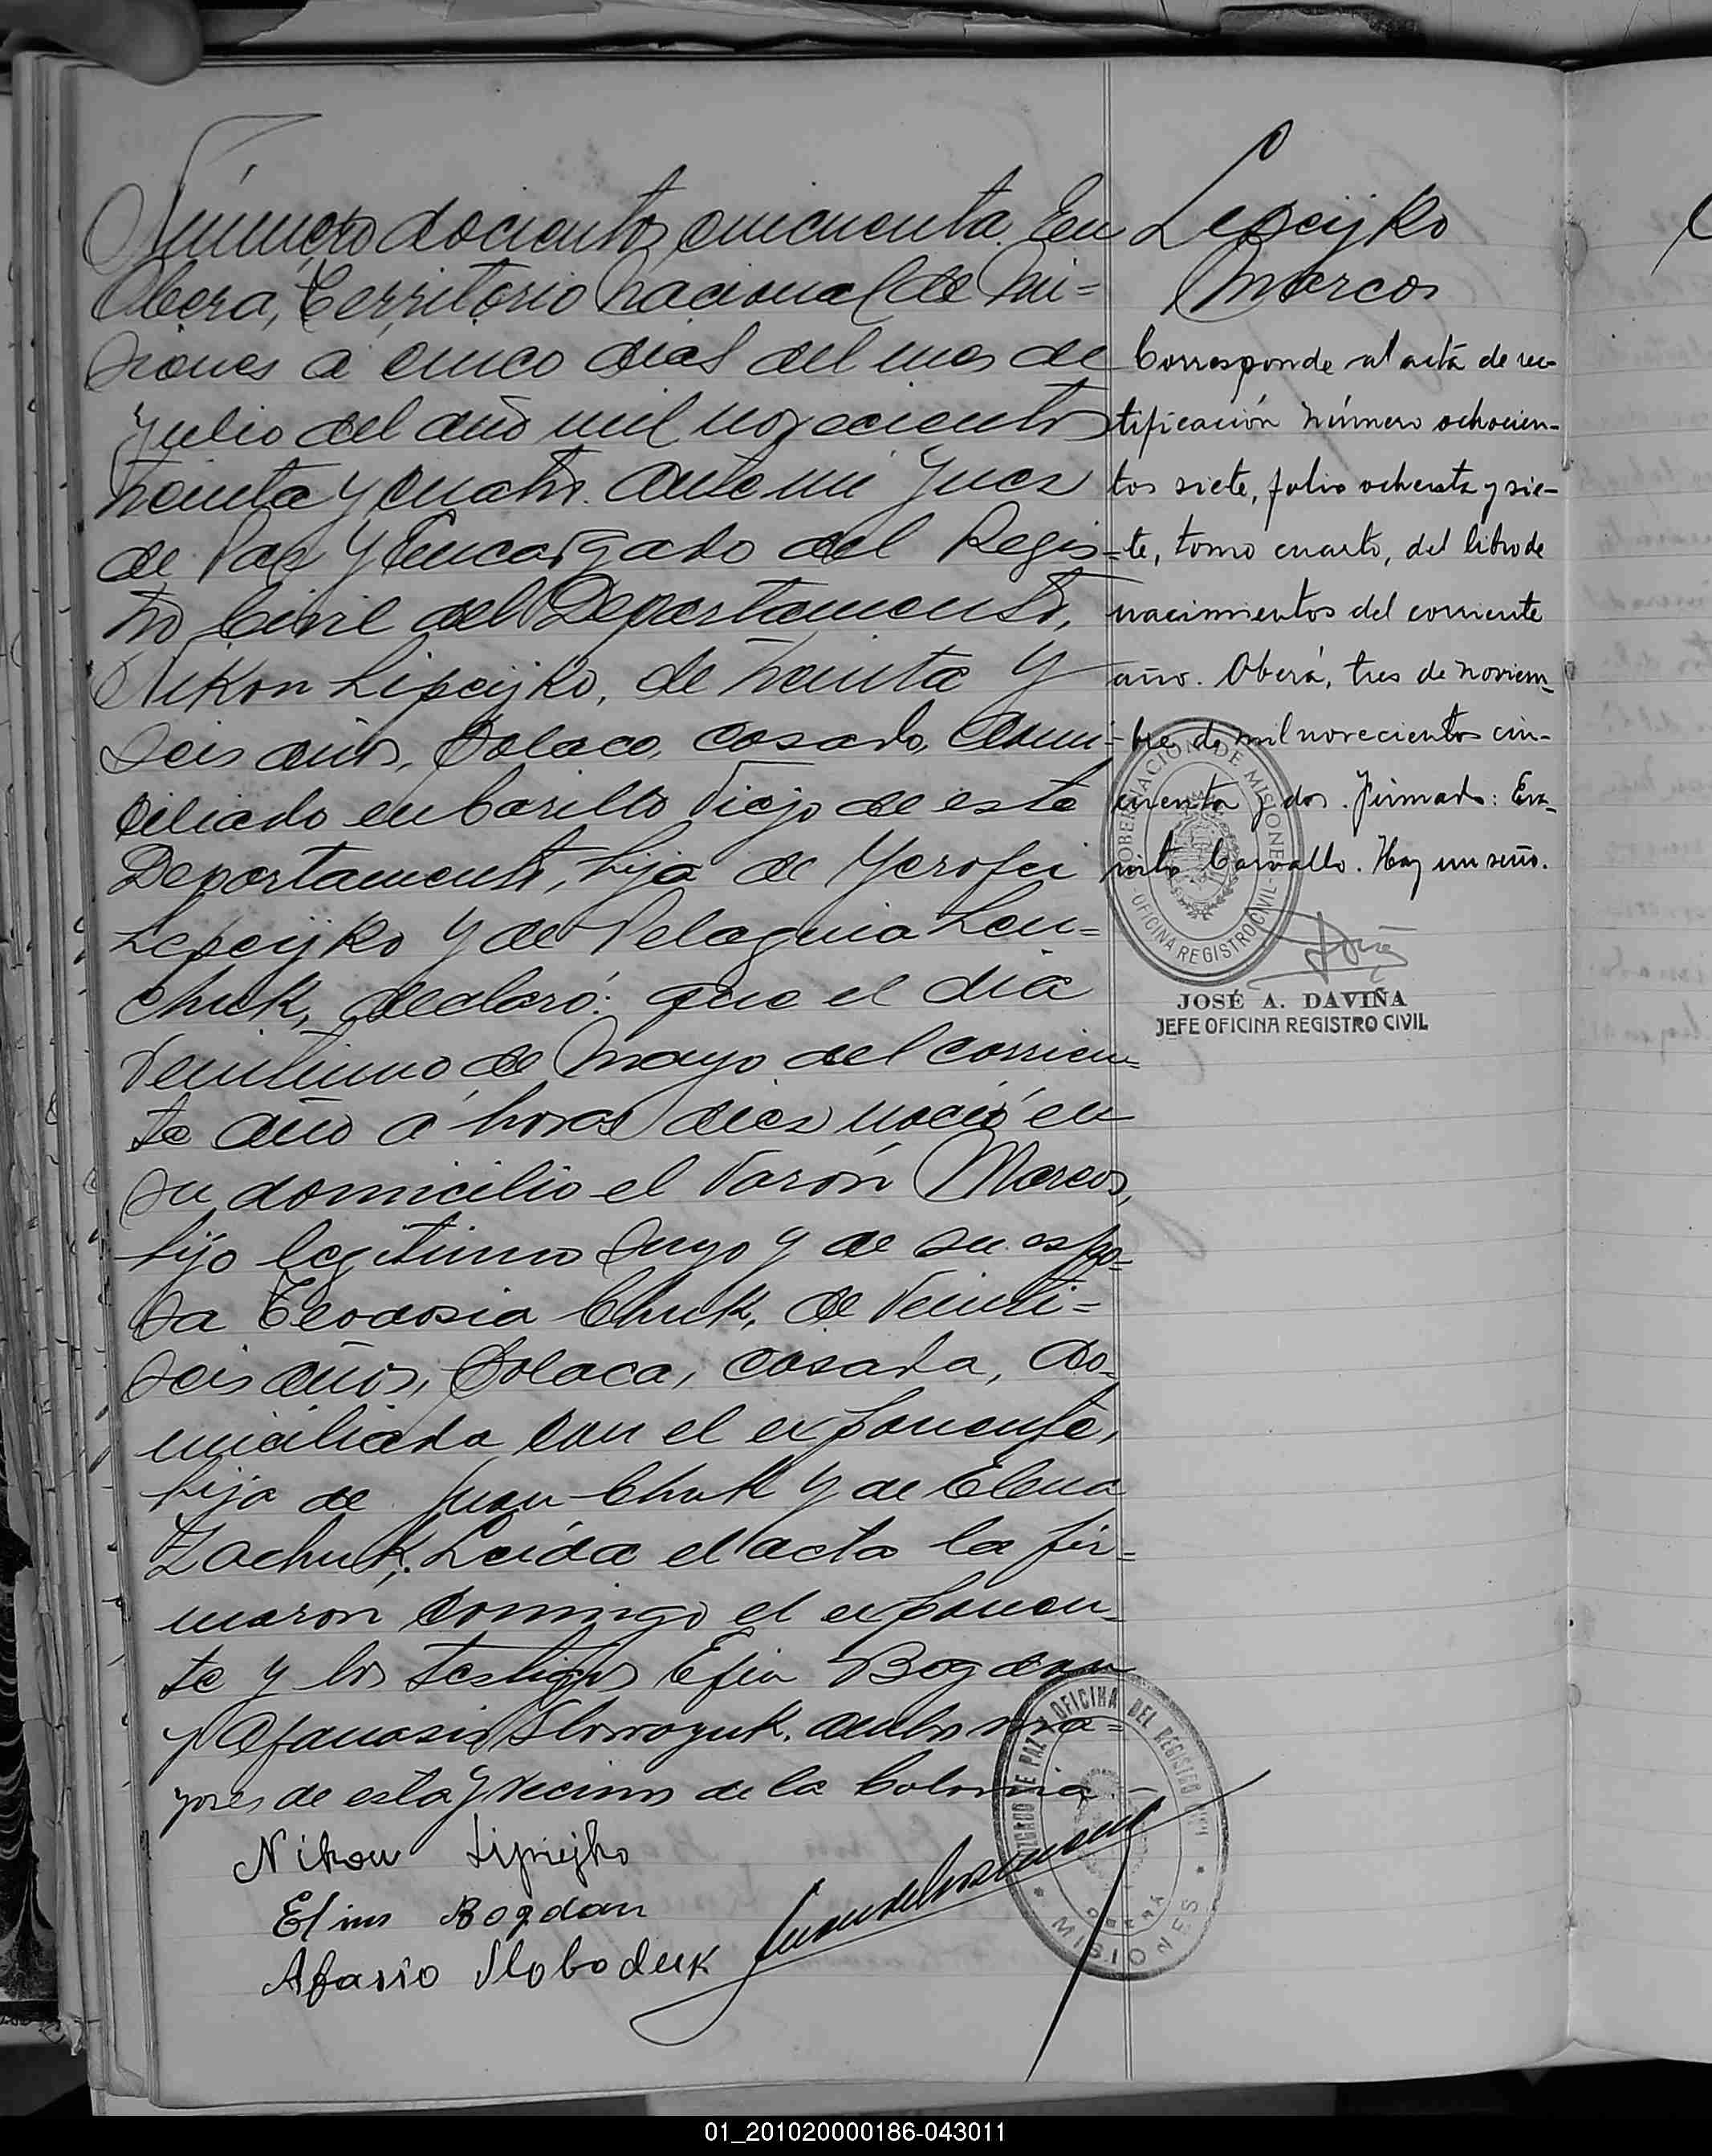 Número dociento cincuenta. En
Oberá, Territorio Nacional de Mi=
siones a cinco dias del mes de
Julio del año mil novecientos
treinta y cuatro. Ante mi Juez
de Paz y Encargado del Regis=
tro Civil del Departamento,
Nikon Lipcijko, de treinta y
seis años, polaco, casado, domi=
ciliado en Cerillo Viejo de este
Departamento, hijo de Yerofei
Lepcijko y de Pelaguia Leu=
chuk, declaró: que el dia
veintiuno de Mayo del corrien=
te año a horas diez nació en
su domicilio el varón Marcos,
hijo legitimo suyo y de su espo=
sa Teodosia Chuk, de veinti=
seis años, polaca, casada, do=
miciliada con el exponente,
hija de Juan Chuk y de Elena
Zachuk. Leída el acta la fir=
maron conmigo el exponen=
te y los testigos Efin Bogdan
y Afanasio Slovoguk. ambos ma=
yores de esta y vecinos de la Colonia
Nikon Lipcijko
Efim Bogdan
Afasio Sloboduk
Lepcijko
Marcos
Corresponde al acta de rec-
tificación número ochocien-
tos siete, folio ochenta y sie-
te, tomo cuarto, del libro de
nacimientos del corriente
año. Oberá, tres de noviem-
bre de mil novecientos cin-
cuenta y dos. Firmado: Er-
nesto Carvallo. Hay un sello.
GOBERNACION DE MISIONES
OFICINA REGISTRO CIVIL
JOSÉ A. DAVIÑA
JEFE OFICINA REGISTRO CIVIL
JUZGADO DE PAZ Y OFICINA DEL REGISTRO CIVIL
OBERA
MISIONES
01_201020000186-043011